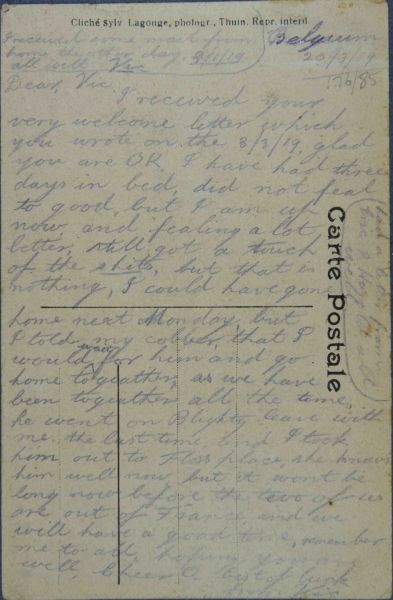 Cliché Sylv Lagouge, photogr., Thuin. Repr. interd
I received some mail from
home the other day.
all well Vic
Belgium
20/3/19
176/85
Dear Vic.
I received your
very welcome letter which
you wrote on the 3/3/19, glad
you are OK. I have had three
days in bed, did not feal
to good, but I am up
now, and fealing a lot
better, still got a touch
of the shits, but that is
nothing, I could have gone
Carte Postale
home next Monday but
I told my cobber, that I
would wait for him and go
home togeather, as we have
been togeather all the time,
he went on Blighty leave with
me the last time, and I took
him out to Floss place, she knows
him well now, but it wont be
long now before the two of us
are out of France and we
will have a good time, remember
me to all, hoping you are
well, Cheer O, best of luck
from Vic